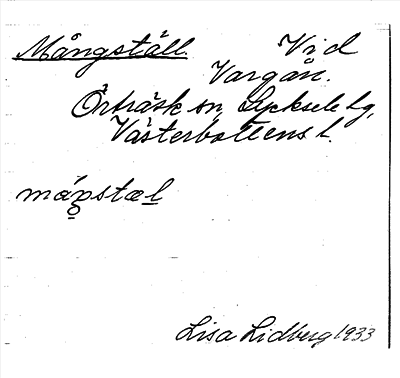 Mångställ. Vid
Vargån.
Örträsk sn, Lycksele lg,
Västerbottens l.
Lisa Lidberg 1933